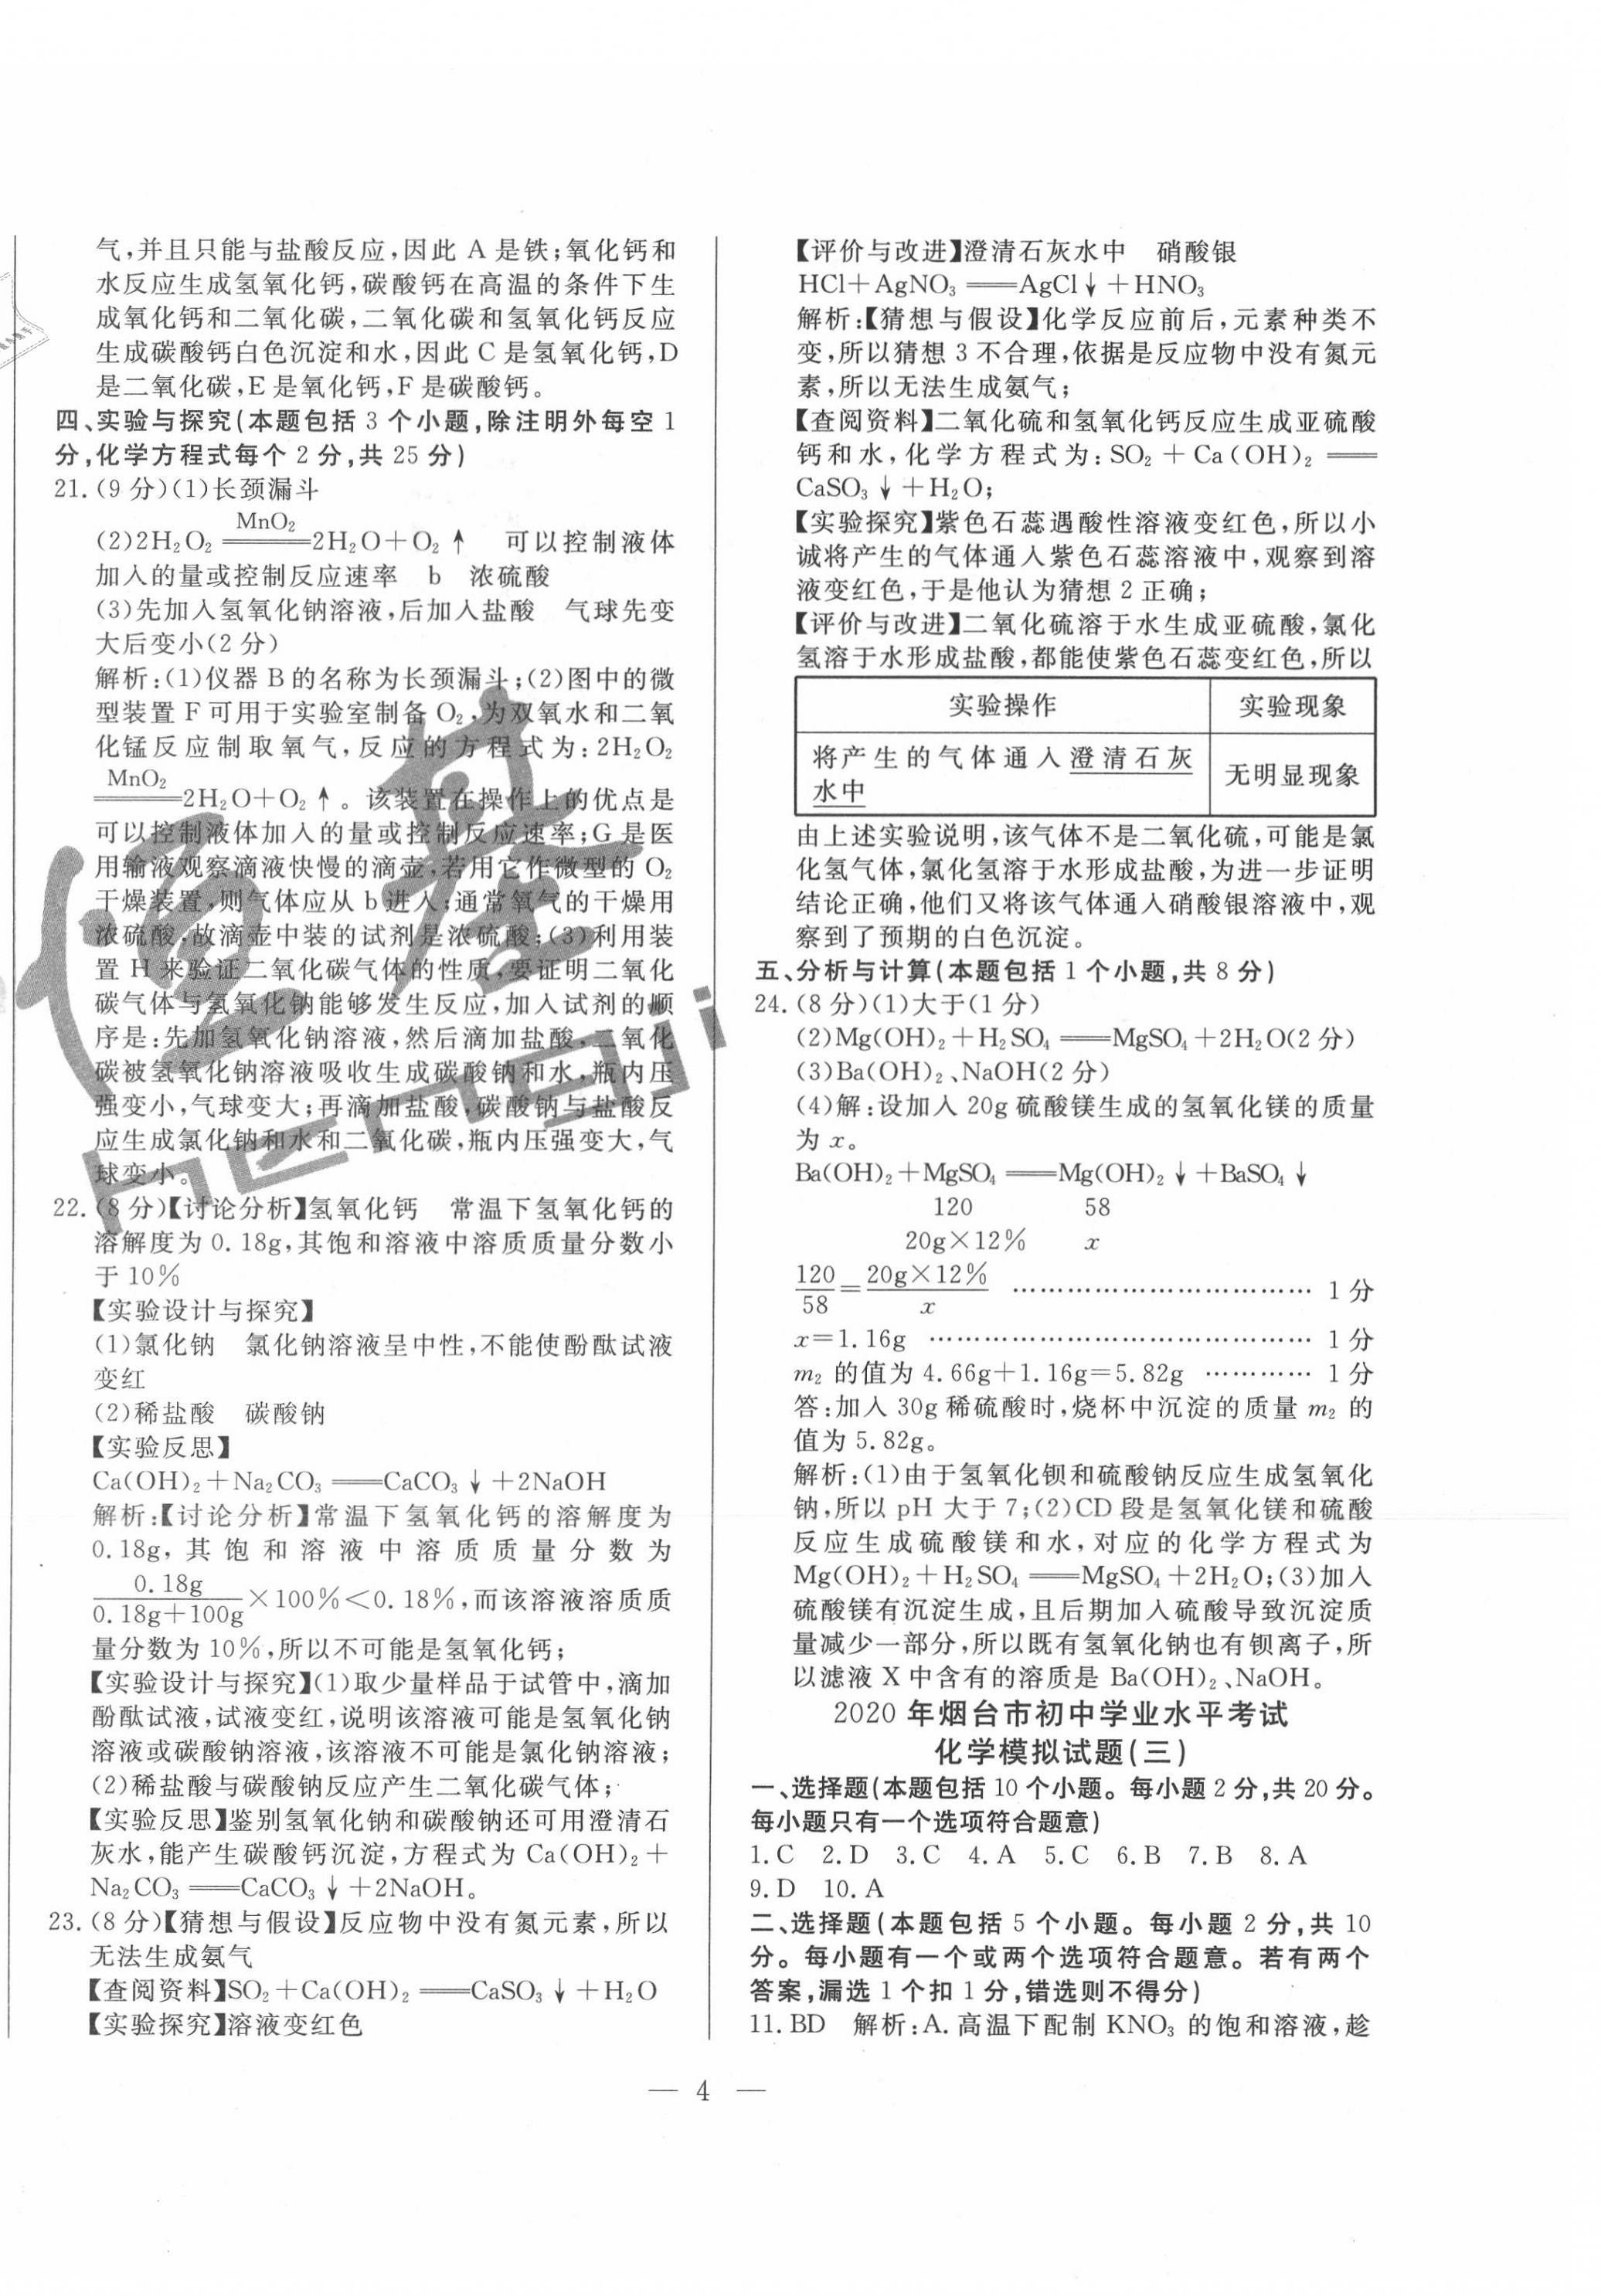 气,并且只能与盐酸反应,因此 A 是铁;氧化钙和
水反应生成氢氧化钙,碳酸钙在高温的条件下生
成氧化钙和二氧化碳,二氧化碳和氢氧化钙反应
生成碳酸钙白色沉淀和水,因此 C 是氢氧化钙,D
是二氧化碳,E 是氧化钙,F 是碳酸钙。
四、实验与探究(本题包括 3 个小题,除注明外每空 1
分,化学方程式每个 2 分,共 25 分)
21.(9 分)(1)长颈漏斗
MnO₂
(2)2H₂O₂ ═══2H₂O+O₂↑ 可以控制液体
加入的量或控制反应速率 b 浓硫酸
(3)先加入氢氧化钠溶液,后加入盐酸 气球先变
大后变小(2 分)
解析:(1)仪器 B 的名称为长颈漏斗;(2)图中的微
型装置 F 可用于实验室制备 O₂,为双氧水和二氧
化锰反应制取氧气,反应的方程式为:2H₂O₂
MnO₂
═══2H₂O+O₂↑。该装置在操作上的优点是
可以控制液体加入的量或控制反应速率;G 是医
用输液观察滴液快慢的滴壶,若用它作微型的 O₂
干燥装置,则气体应从 b 进入;通常氧气的干燥用
浓硫酸,故滴壶中装的试剂是浓硫酸;(3)利用装
置 H 来验证二氧化碳气体的性质,要证明二氧化
碳气体与氢氧化钠能够发生反应,加入试剂的顺
序是:先加氢氧化钠溶液,然后滴加盐酸,二氧化
碳被氢氧化钠溶液吸收生成碳酸钠和水,瓶内压
强变小,气球变大;再滴加盐酸,碳酸钠与盐酸反
应生成氯化钠和水和二氧化碳,瓶内压强变大,气
球变小。
22.(8 分)【讨论分析】氢氧化钙 常温下氢氧化钙的
溶解度为 0.18g,其饱和溶液中溶质质量分数小
于 10%
【实验设计与探究】
(1)氯化钠 氯化钠溶液呈中性,不能使酚酞试液
变红
(2)稀盐酸 碳酸钠
【实验反思】
Ca(OH)₂+Na₂CO₃═══CaCO₃↓+2NaOH
解析:【讨论分析】常温下氢氧化钙的溶解度为
0.18g,其饱和溶液中溶质质量分数为
0.18g/(0.18g+100g)×100%<0.18%,而该溶液溶质质
量分数为 10%,所以不可能是氢氧化钙;
【实验设计与探究】(1)取少量样品于试管中,滴加
酚酞试液,试液变红,说明该溶液可能是氢氧化钠
溶液或碳酸钠溶液,该溶液不可能是氯化钠溶液;
(2)稀盐酸与碳酸钠反应产生二氧化碳气体;
【实验反思】鉴别氢氧化钠和碳酸钠还可用澄清石
灰水,能产生碳酸钙沉淀,方程式为 Ca(OH)₂+
Na₂CO₃═══CaCO₃↓+2NaOH。
23.(8 分)【猜想与假设】反应物中没有氮元素,所以
无法生成氨气
【查阅资料】SO₂+Ca(OH)₂═══CaSO₃↓+H₂O
【实验探究】溶液变红色
【评价与改进】澄清石灰水中 硝酸银
HCl+AgNO₃═══AgCl↓+HNO₃
解析:【猜想与假设】化学反应前后,元素种类不
变,所以猜想 3 不合理,依据是反应物中没有氮元
素,所以无法生成氨气;
【查阅资料】二氧化硫和氢氧化钙反应生成亚硫酸
钙和水,化学方程式为:SO₂+Ca(OH)₂═══
CaSO₃↓+H₂O;
【实验探究】紫色石蕊遇酸性溶液变红色,所以小
诚将产生的气体通入紫色石蕊溶液中,观察到溶
液变红色,于是他认为猜想 2 正确;
【评价与改进】二氧化硫溶于水生成亚硫酸,氯化
氢溶于水形成盐酸,都能使紫色石蕊变红色,所以
实验操作 实验现象
将产生的气体通入澄清石灰
水中 无明显现象
由上述实验说明,该气体不是二氧化硫,可能是氯
化氢气体,氯化氢溶于水形成盐酸,为进一步证明
结论正确,他们又将该气体通入硝酸银溶液中,观
察到了预期的白色沉淀。
五、分析与计算(本题包括 1 个小题,共 8 分)
24.(8 分)(1)大于(1 分)
(2)Mg(OH)₂+H₂SO₄═══MgSO₄+2H₂O(2 分)
(3)Ba(OH)₂、NaOH(2 分)
(4)解:设加入 20g 硫酸镁生成的氢氧化镁的质量
为 x。
Ba(OH)₂+MgSO₄═══Mg(OH)₂↓+BaSO₄↓
120 58
20g×12% x
120/58=20g×12%/x ………………………………1 分
x=1.16g ……………………………………1 分
m₂ 的值为 4.66g+1.16g=5.82g …………1 分
答:加入 30g 稀硫酸时,烧杯中沉淀的质量 m₂ 的
值为 5.82g。
解析:(1)由于氢氧化钡和硫酸钠反应生成氢氧化
钠,所以 pH 大于 7;(2)CD 段是氢氧化镁和硫酸
反应生成硫酸镁和水,对应的化学方程式为
Mg(OH)₂+H₂SO₄═══MgSO₄+2H₂O;(3)加入
硫酸镁有沉淀生成,且后期加入硫酸导致沉淀质
量减少一部分,所以既有氢氧化钠也有钡离子,所
以滤液 X 中含有的溶质是 Ba(OH)₂、NaOH。
2020 年烟台市初中学业水平考试
化学模拟试题(三)
一、选择题(本题包括 10 个小题。每小题 2 分,共 20 分。
每小题只有一个选项符合题意)
1.C 2.D 3.C 4.A 5.C 6.B 7.B 8.A
9.D 10.A
二、选择题(本题包括 5 个小题。每小题 2 分,共 10
分。每小题有一个或两个选项符合题意。若有两个
答案,漏选 1 个扣 1 分,错选则不得分)
11.BD 解析:A.高温下配制 KNO₃ 的饱和溶液,趁
— 4 —
恒基
HENGJI